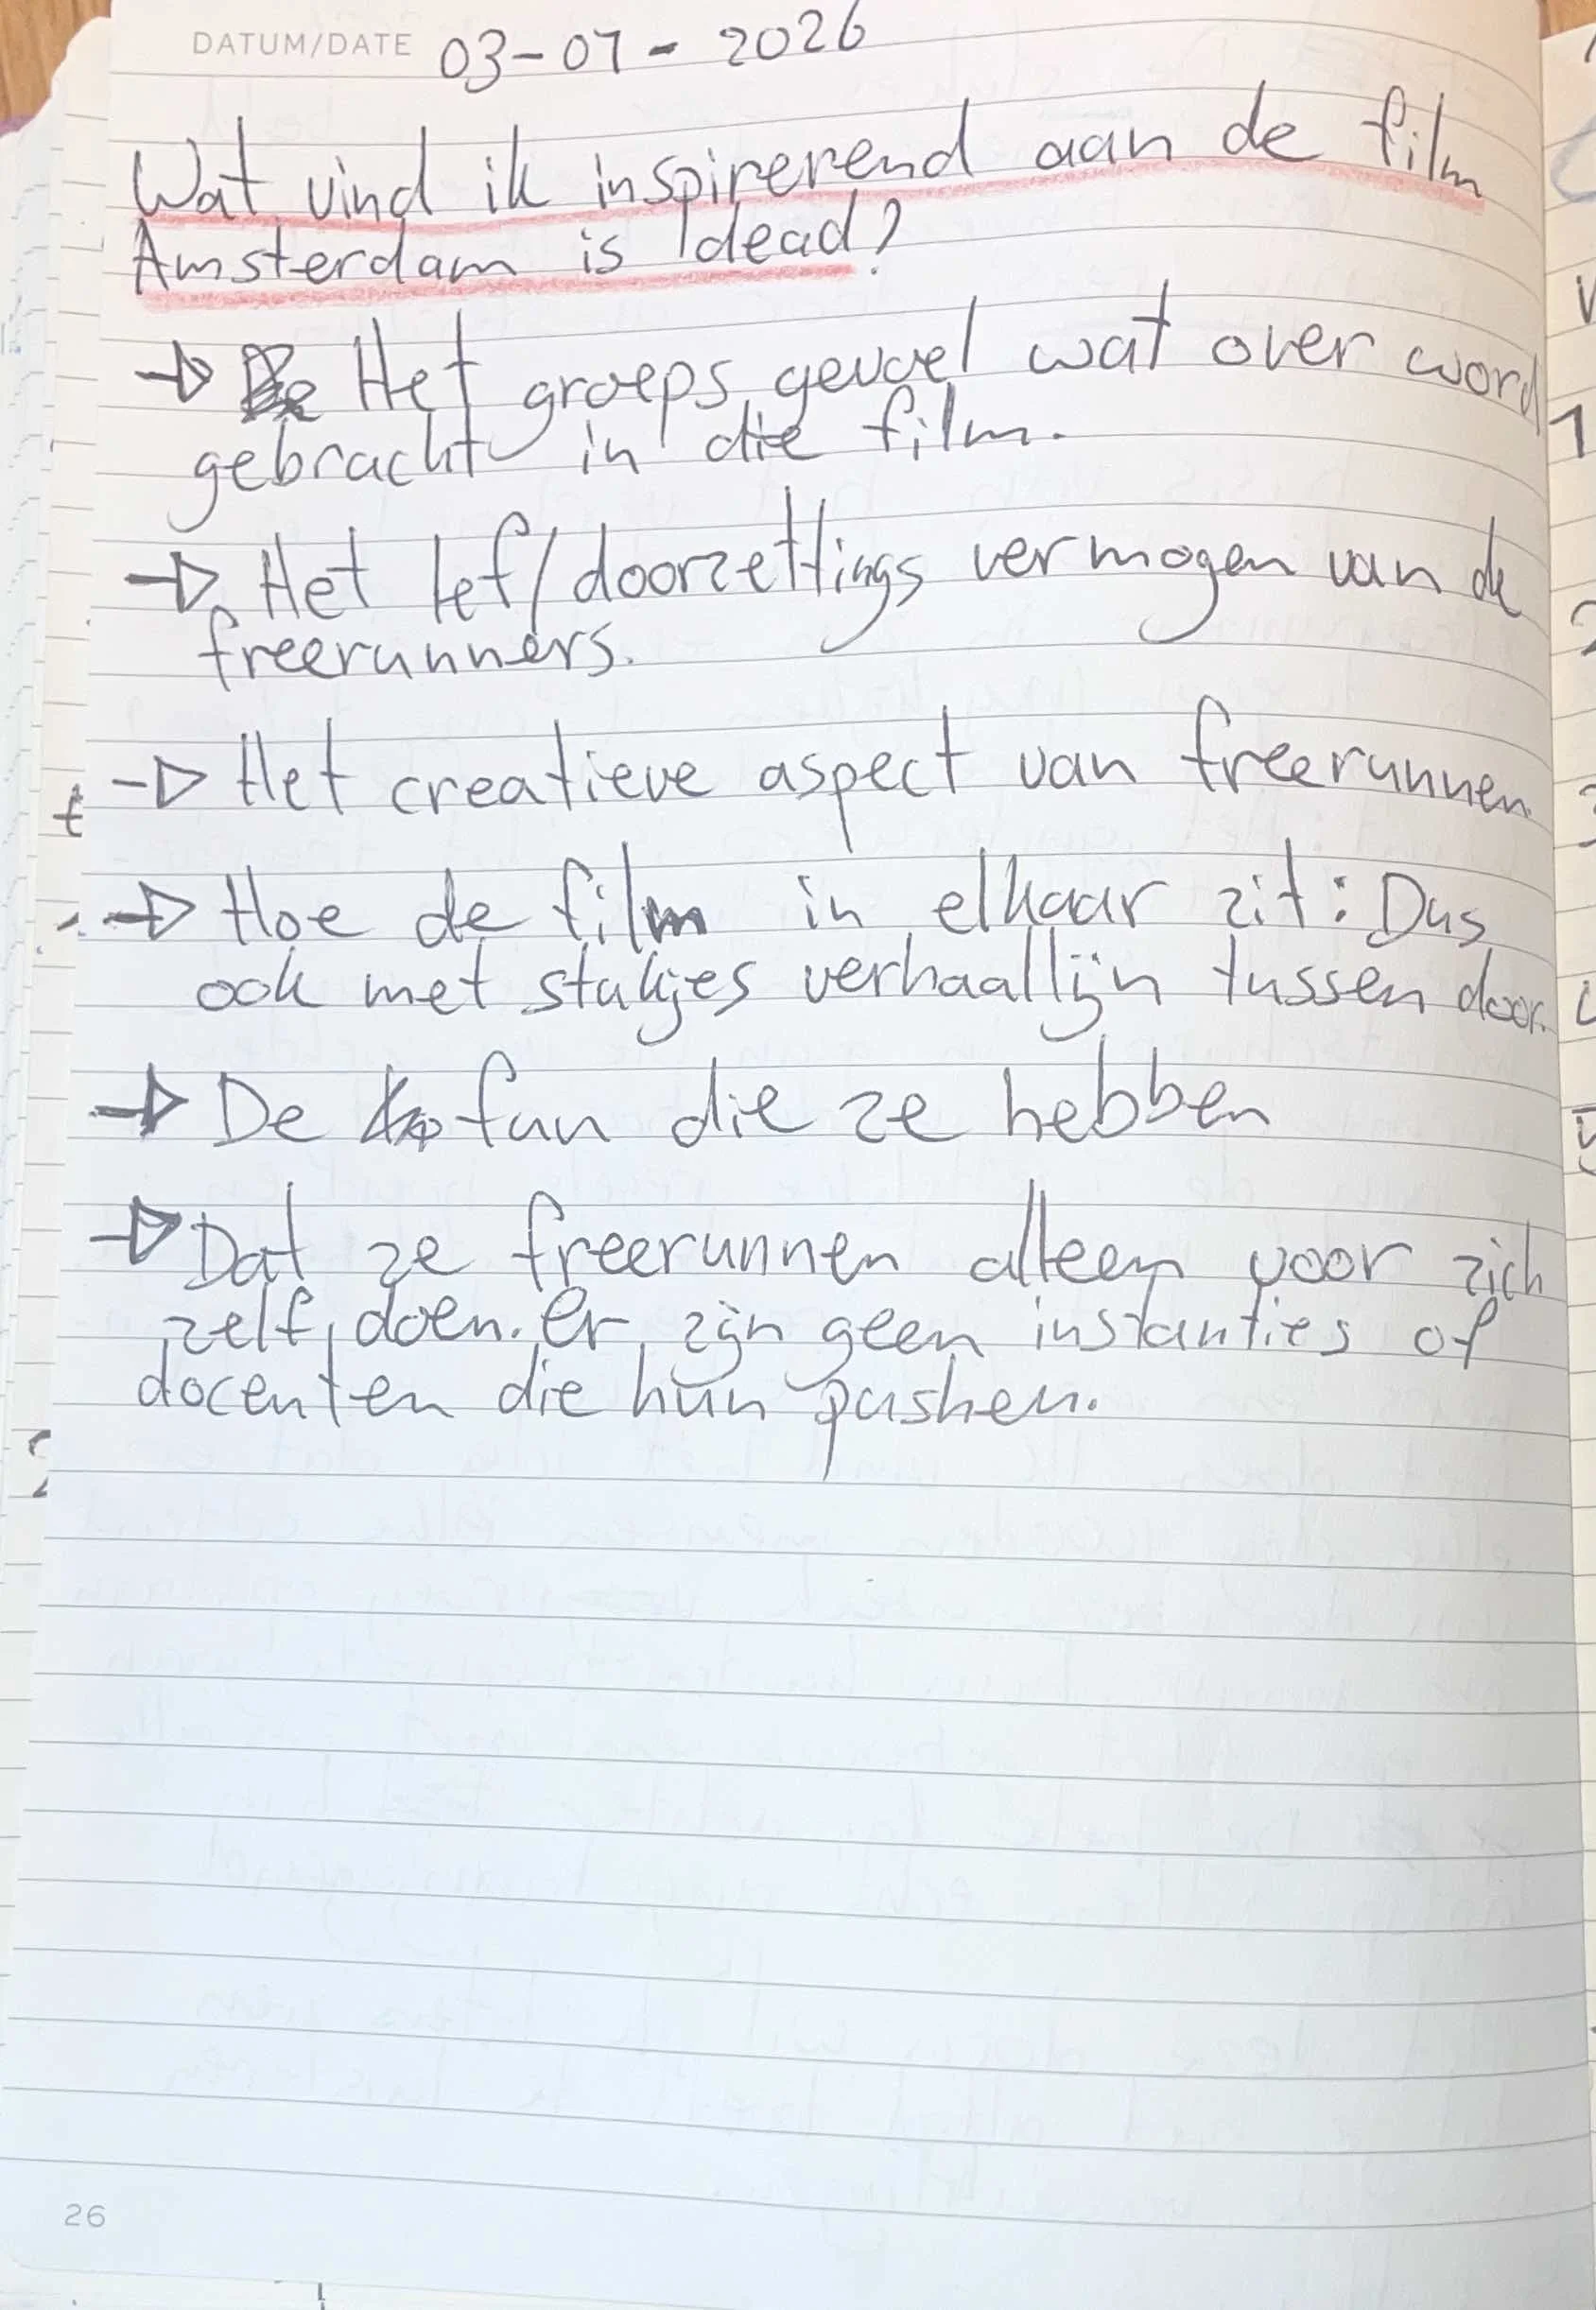 DATUM/DATE 03-07-2026
Wat vind ik inspirerend aan de film
Amsterdam is dead?
→ Het groeps gevoel wat over word
gebracht in die film.
→ Het lef/doorzettings vermogen van de
freerunners.
→ Het creatieve aspect van freerunnen.
→ Hoe de film in elkaar zit: Dus
ook met stukjes verhaallijn tussen door.
→ De fun die ze hebben
→ Dat ze freerunnen alleen voor zich
zelf doen. er zijn geen instanties of
docenten die hun pushen.
26